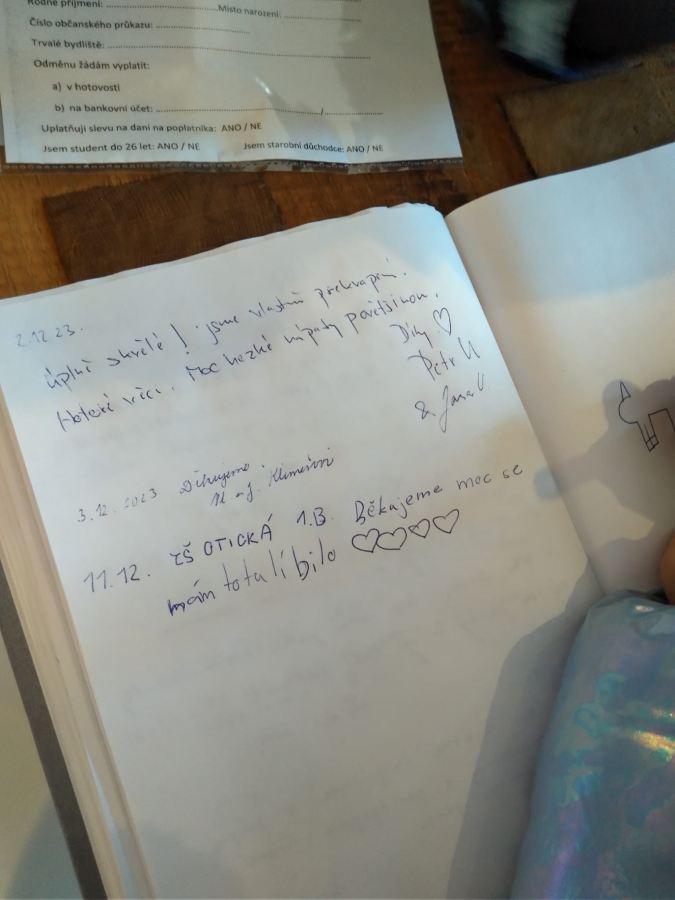 Rodné příjmení: ............................ Místo narození: ....................
Číslo občanského průkazu: ............................
Trvalé bydliště: ............................................................
Odměnu žádám vyplatit:
a) v hotovosti
b) na bankovní účet: ............................................/................
Uplatňuji slevu na dani na poplatníka: ANO / NE
Jsem student do 26 let: ANO / NE Jsem starobní důchodce: ANO / NE
2.12.23.
úplně skvělé! jsme vlastně překvapení.
Moc hezké nápady povětšinou.
Díky ♡
Petr
& Jana
3.12.2023 Děkujeme.
11.12. ZŠ OTICKÁ 1.B. Běkajeme moc se
mám totalí bilo ♡♡♡♡